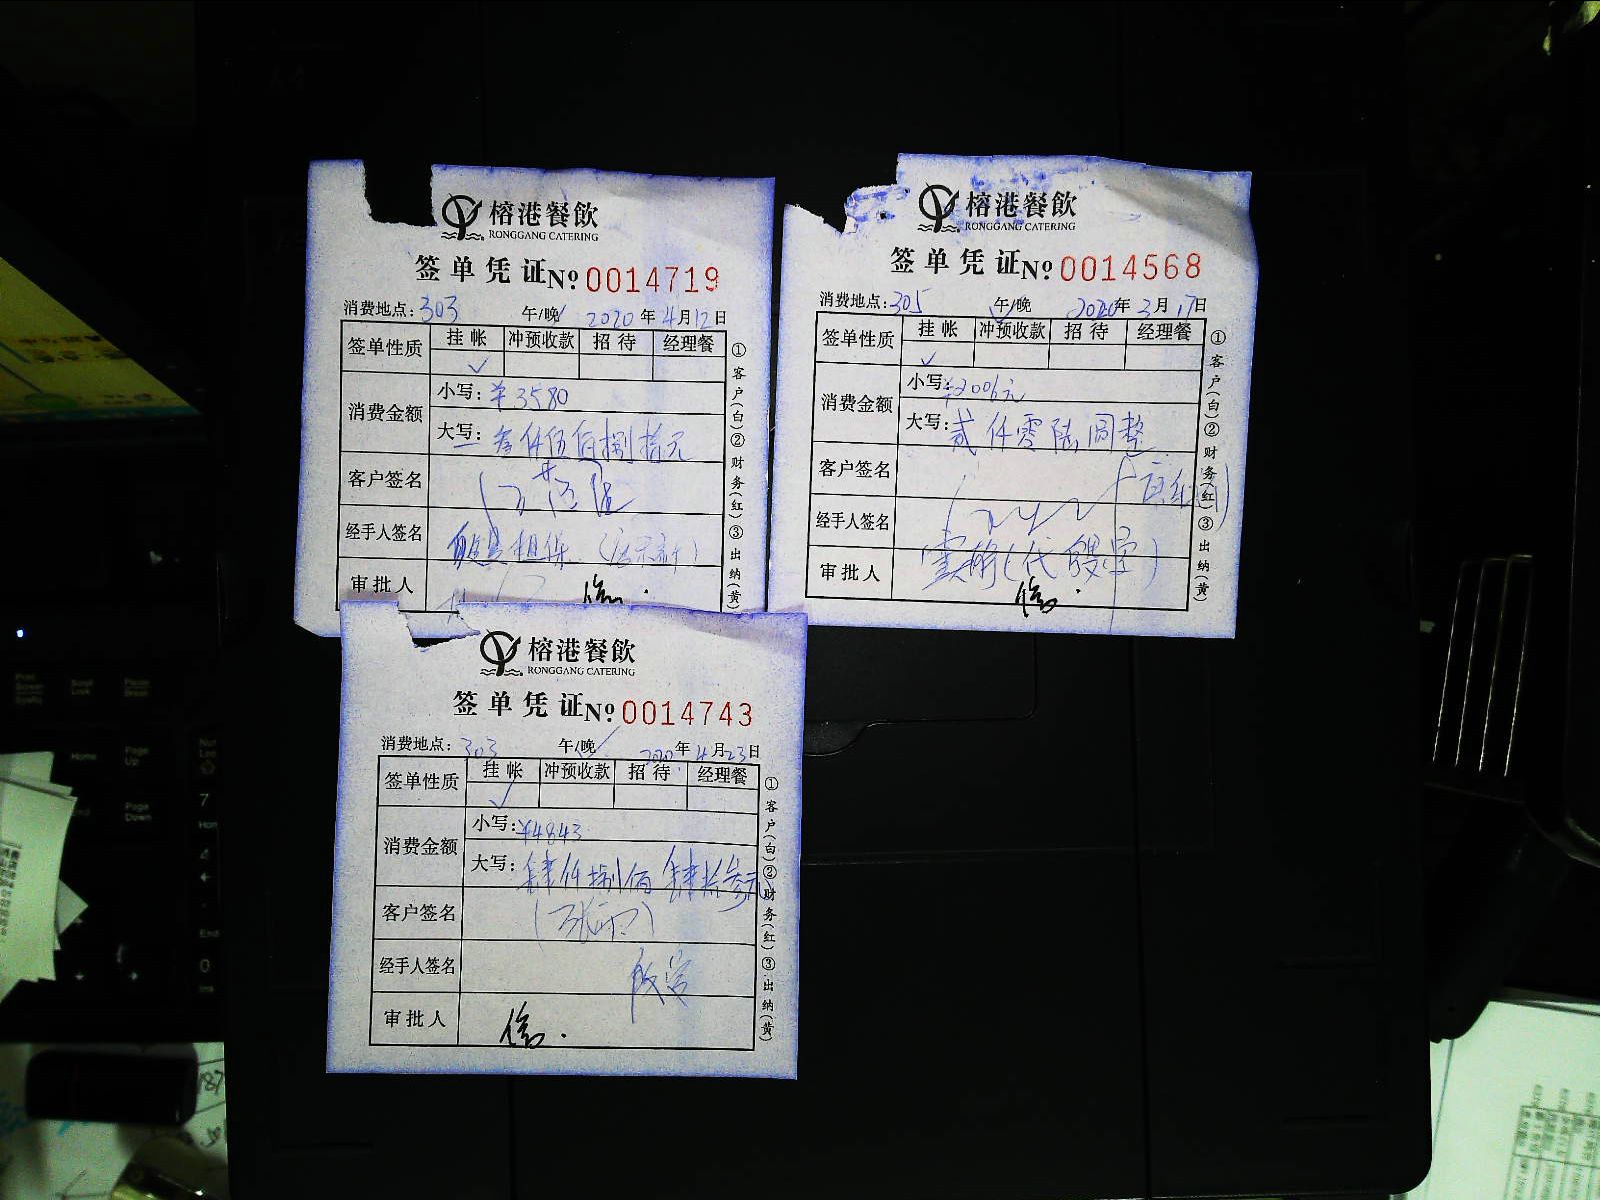 榕港餐飲
RONGGANG CATERING
签单凭证№0014719
消费地点：303 午/晚 2020年4月12日
签单性质 挂帐 冲预收款 招待 经理餐
消费金额 小写：¥3580
大写：叁仟伍佰捌拾元
客户签名
经手人签名 担保
审批人
①客户(白)②财务(红)③出纳(黄)
榕港餐飲
RONGGANG CATERING
签单凭证№0014568
消费地点：305 午/晚 2020年3月17日
签单性质 挂帐 冲预收款 招待 经理餐
消费金额 小写：¥2006元
大写：贰仟零陆圆整
客户签名
经手人签名
审批人
①客户(白)②财务(红)③出纳(黄)
榕港餐飲
RONGGANG CATERING
签单凭证№0014743
消费地点：303 午/晚 2020年4月23日
签单性质 挂帐 冲预收款 招待 经理餐
消费金额 小写：¥4843
大写：肆仟捌佰肆拾叁元
客户签名
经手人签名
审批人
①客户(白)②财务(红)③出纳(黄)